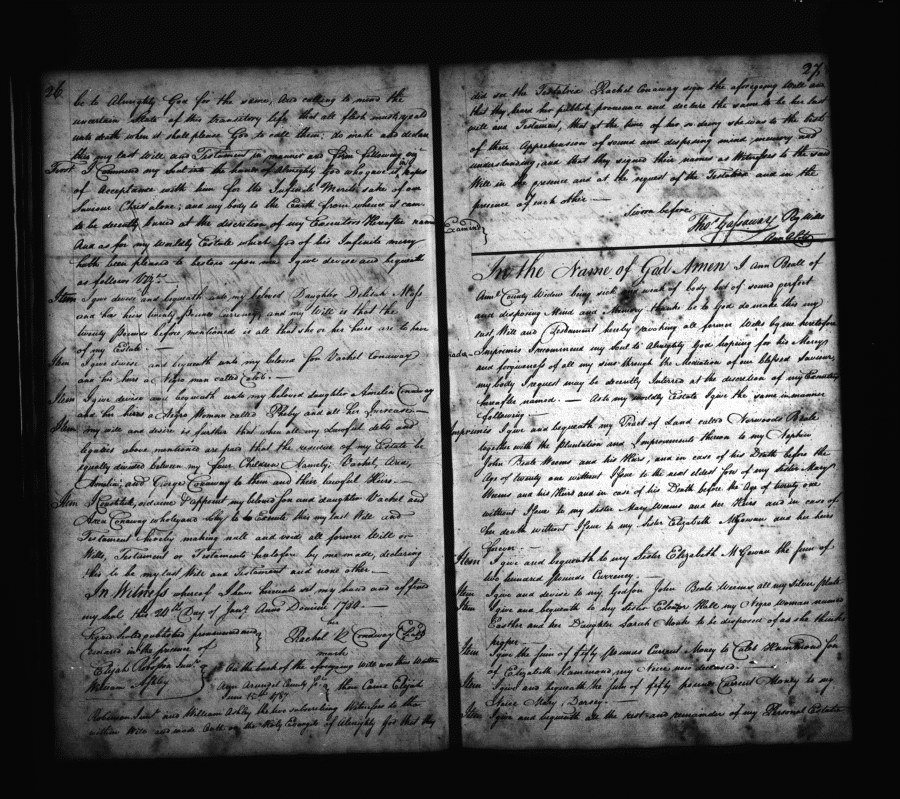 26
be to Almighty God for the same, And calling to mind the
uncertain State of this transitory life that all flesh must yeald
unto death when it shall please God to call them, do make and declare
this my last Will and Testament in manner and form following
First I Commend my Soul into the hands of Almighty God who gave it, in hopes
of Acceptance with him for the Infinite Merits sake of our
Saviour Christ alone; and my body to the Earth from whence it came
to be decently buried at the discretion of my Executors Hereafter named
And as for my worldly Estate which God of his Infinite mercy
hath been pleased to bestow upon me I give devise and bequeath
as follows Vizt.
Item I give devise and bequeath unto my beloved Daughter Delilah Moss
and her heirs twenty Pounds currency, and my Will is that the
twenty Pounds before mentioned is all that she or her heirs are to have
of my Estate. —
Item I give devise and bequeath unto my beloved Son Vachel Conaway
and his heirs a Negro man called Caleb. —
Item I give devise and bequeath unto my beloved daughter Amelia Conaway
and her heirs a Negro Woman called Phoby and all her Increase —
Item my will and desire is further that when all my Lawful debts and
legacies above mentioned are paid that the residue of my Estate be
equally divided between my four Children Namely; Vachel, Ann,
Amelia; and George Conaway to them and their lawful Heirs. —
Item I Constitute, ordaine & appoint my beloved son and daughter Vachel and
Ann Conaway wholy and Soly to Execute this my last Will and
Testament hereby making null and void all former Will or
Wills, Testament or Testaments heretofore by me made, declaring
this to be my last Will and Testament and none other. —
In Witness whereof I have hereunto set my hand and affixed
my Seal this 24th Day of Jany. Anno Domini
Signed Sealed published pronounced and
declared in the presence of
her
Rachel Conaway Seal
mark
Elijah Robosson Junr.
William Ashley
On the back of the aforegoing Will was thus Written
Ann Arundel County Sc.
then Came Elijah
Robosson Junr and William Ashley the two subscribing Witnesses to the
within Will and made Oath on the Holy Evangels of Almighty God that they
27
did see the Testatrix Rachel Conaway sign the aforegoing Will and
that they heard her publish pronounce and declare the same to be her last
will and Testament, that at the time of her so doing she was to the best
of their Apprehension of sound and disposing mind memory and
understanding; and that they signed their names as Witnesses to the said
Will in the presence and at the request of the Testatrix and in the
presence of each other —
Sworn before
Examined
Thos. Gassaway Reg Wills
In the Name of God Amen I Ann Beall of
County Widow being sick and weak of body but of sound perfect
and disposing Mind and Memory thanks be to God do make this my
last Will and Testament hereby revoking all former Wills by me heretofore
made — Imprimis I recommend my Soul to Almighty God hopeing for his Mercy
and forgiveness of all my sins through the Mediation of our blessed Saviour,
my body I request may be decently Interred at the discretion of my Executors
hereafter named. — As to my worldly Estate I give the same in manner
following —
Imprimis I give and bequeath my Part of Land called Norwoods Beale
together with the Plantation and Improvements thereon to my Nephew
John Beale Weems and his Heirs, and in case of his Death before the
Age of twenty one without Issue to the next eldest Son of my sister Mary
Weems and his Heirs and in case of his Death before the Age of twenty one
without Issue to my sister Mary Weems and her Heirs and in case of
her death without Issue to my sister Elizabeth McGowan and her heirs
forever —
Item I give and bequeath to my Sister Elizabeth McGowan the sum of
two hundred Pounds Currency —
Item I give and devise to my Godson John Beale Weems all my Silver Plate
Item I give and bequeath to my Sister Hall my Negro woman named
Easther and her Daughter Sarah to be disposed of as she thinks
proper —
Item I give the sum of fifty Pounds Current Money to Caleb Hammond son
of Elizabeth Hammond my Niece now deceased —
Item I give and bequeath the sum of fifty pounds Current Money to my
Niece Mary Dorsey —
Item I give and bequeath all the rest and remainder of my Personal Estate